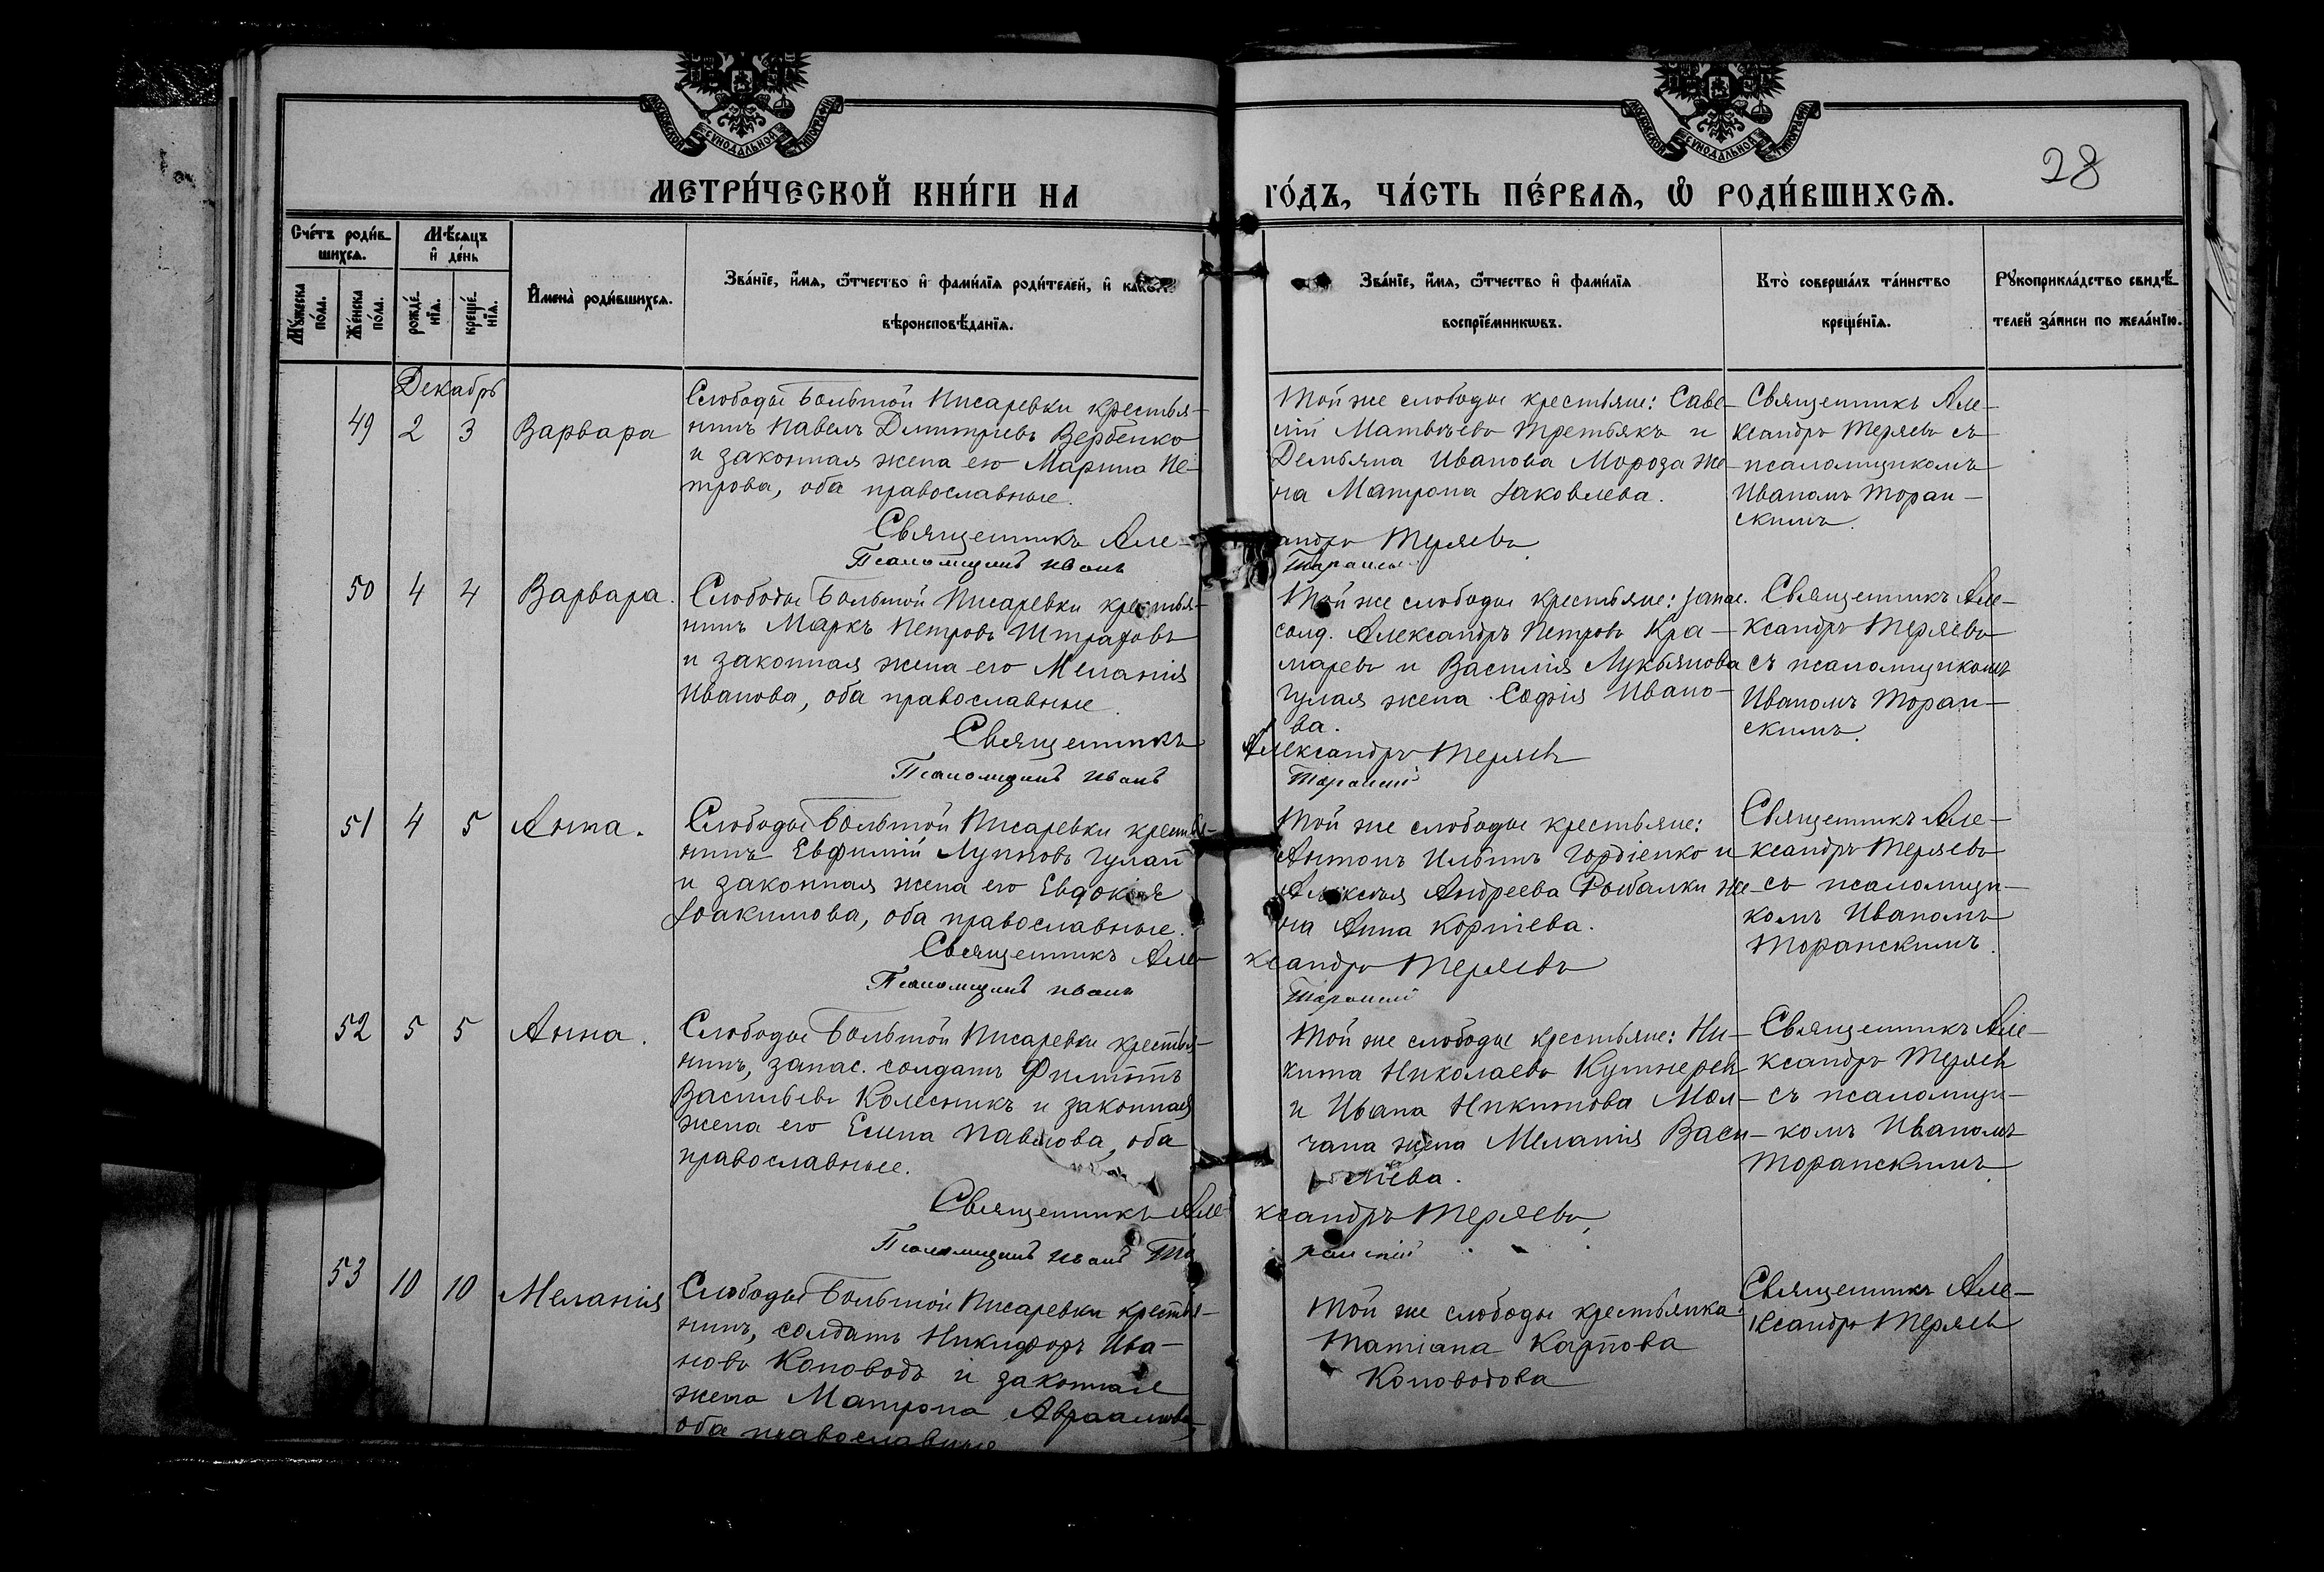 МОСКОВСКОЙ СУНОДАЛЬНОЙ ТИПОГРАФІИ
МОСКОВСКОЙ СУНОДАЛЬНОЙ ТИПОГРАФІИ
28
МЕТРИ́ЧЕСКОЙ КНИ́ГИ НА ГО́ДЪ, ЧА́СТЬ ПЕ́РВАѦ, Ѡ РОДИ́ВШИХСѦ.
Сче́тъ роди́в-
шихсѧ.
Мꙋ́жеска по́ла.
Же́нска по́ла.
Мѣ́сѧцъ
и҆ де́нь
рожде́-
нїѧ.
креще́-
нїѧ.
И҆мена̀ роди́вшихсѧ.
Зва́нїе, и҆́мѧ, ѻ҆́тчество и҆ фами́лїѧ роди́телей, и҆
вѣроисповѣ́данїѧ.
Зва́нїе, и҆́мѧ, ѻ҆́тчество и҆ фами́лїѧ
воспрїе́мникѡвъ.
Кто̀ соверша́лъ та́инство
креще́нїѧ.
Рꙋкоприкла́дство свидѣ́-
телей за́писи по жела́нїю.
Декабрь
49 2 3 Варвара
Слободы Большой Писаревки крестья-
нинъ Павелъ Димитріевъ Вербенко
и законная жена его Марина Пе-
трова, оба православные.
Той же слободы крестьяне: Саве-
лій Матвѣевъ Третьякъ и
Демьяна Иванова Мороза же-
на Матрона Іаковлева.
Священникъ Але-
ксандръ Теряевъ съ
псаломщикомъ
Иваномъ Торан-
скимъ.
Священникъ Але-
андръ Теряевъ.
Псаломщикъ Иванъ
50 4 4 Варвара.
Слободы Большой Писаревки крестья-
нинъ Маркъ Петровъ Штраховъ
и законная жена его Меланія
Иванова, оба православные.
Той же слободы крестьяне: запас.
солд. Александръ Петровъ Кра-
маревъ и Василія Лукьянова
Гулая жена Софія Ивано-
ва.
Священникъ Але-
ксандръ Теряевъ
съ псаломщикомъ
Иваномъ Торан-
скимъ.
Священникъ Александръ Теряевъ
Псаломщикъ Иванъ Торанскій
51 4 5 Анна.
Слободы Большой Писаревки крестья-
нинъ Евфимій Лупповъ Гулай
и законная жена его Евдокія
Іоакимова, оба православные.
Той же слободы крестьяне:
Антонъ Ильинъ Гордіенко и
Алексѣя Андреева Рыбалки же-
на Анна Корніева.
Священникъ Але-
ксандръ Теряевъ
съ псаломщи-
комъ Иваномъ
Торанскимъ.
Священникъ Але-
ксандръ Теряевъ
Псаломщикъ Иванъ Торанскій
52 5 5 Анна.
Слободы Большой Писаревки крестья-
нинъ, запас. солдатъ Филиппъ
Васильевъ Колесникъ и законная
жена его Елена Павлова, оба
православные.
Той же слободы крестьяне: Ни-
кита Николаевъ Кушнеревъ
и Ивана Никитова Мол-
чана жена Меланія Васи-
ліева.
Священникъ Але-
ксандръ Теряевъ
съ псаломщи-
комъ Иваномъ
Торанскимъ.
Священникъ Але-
ксандръ Теряевъ.
Псаломщикъ Иванъ То
ранскій
53 10 10 Меланія
Слободы Большой Писаревки крестья-
нинъ, солдатъ Никифоръ Ива-
новъ Коноводъ и законная
жена Матрона Авраамова,
оба православные
Той же слободы крестьянка:
Татіана Карпова
Коноводова
Священникъ Але-
ксандръ Теряевъ